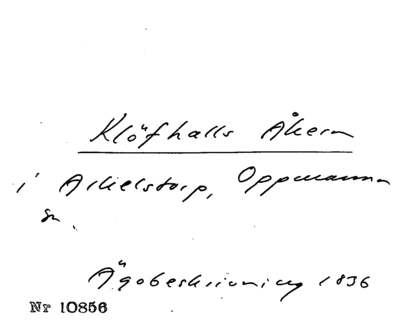 Klöfhalls Åkern
i Arkelstorp, Oppmanna
sn.
Ägobeskrivning 1836
Nr 10856